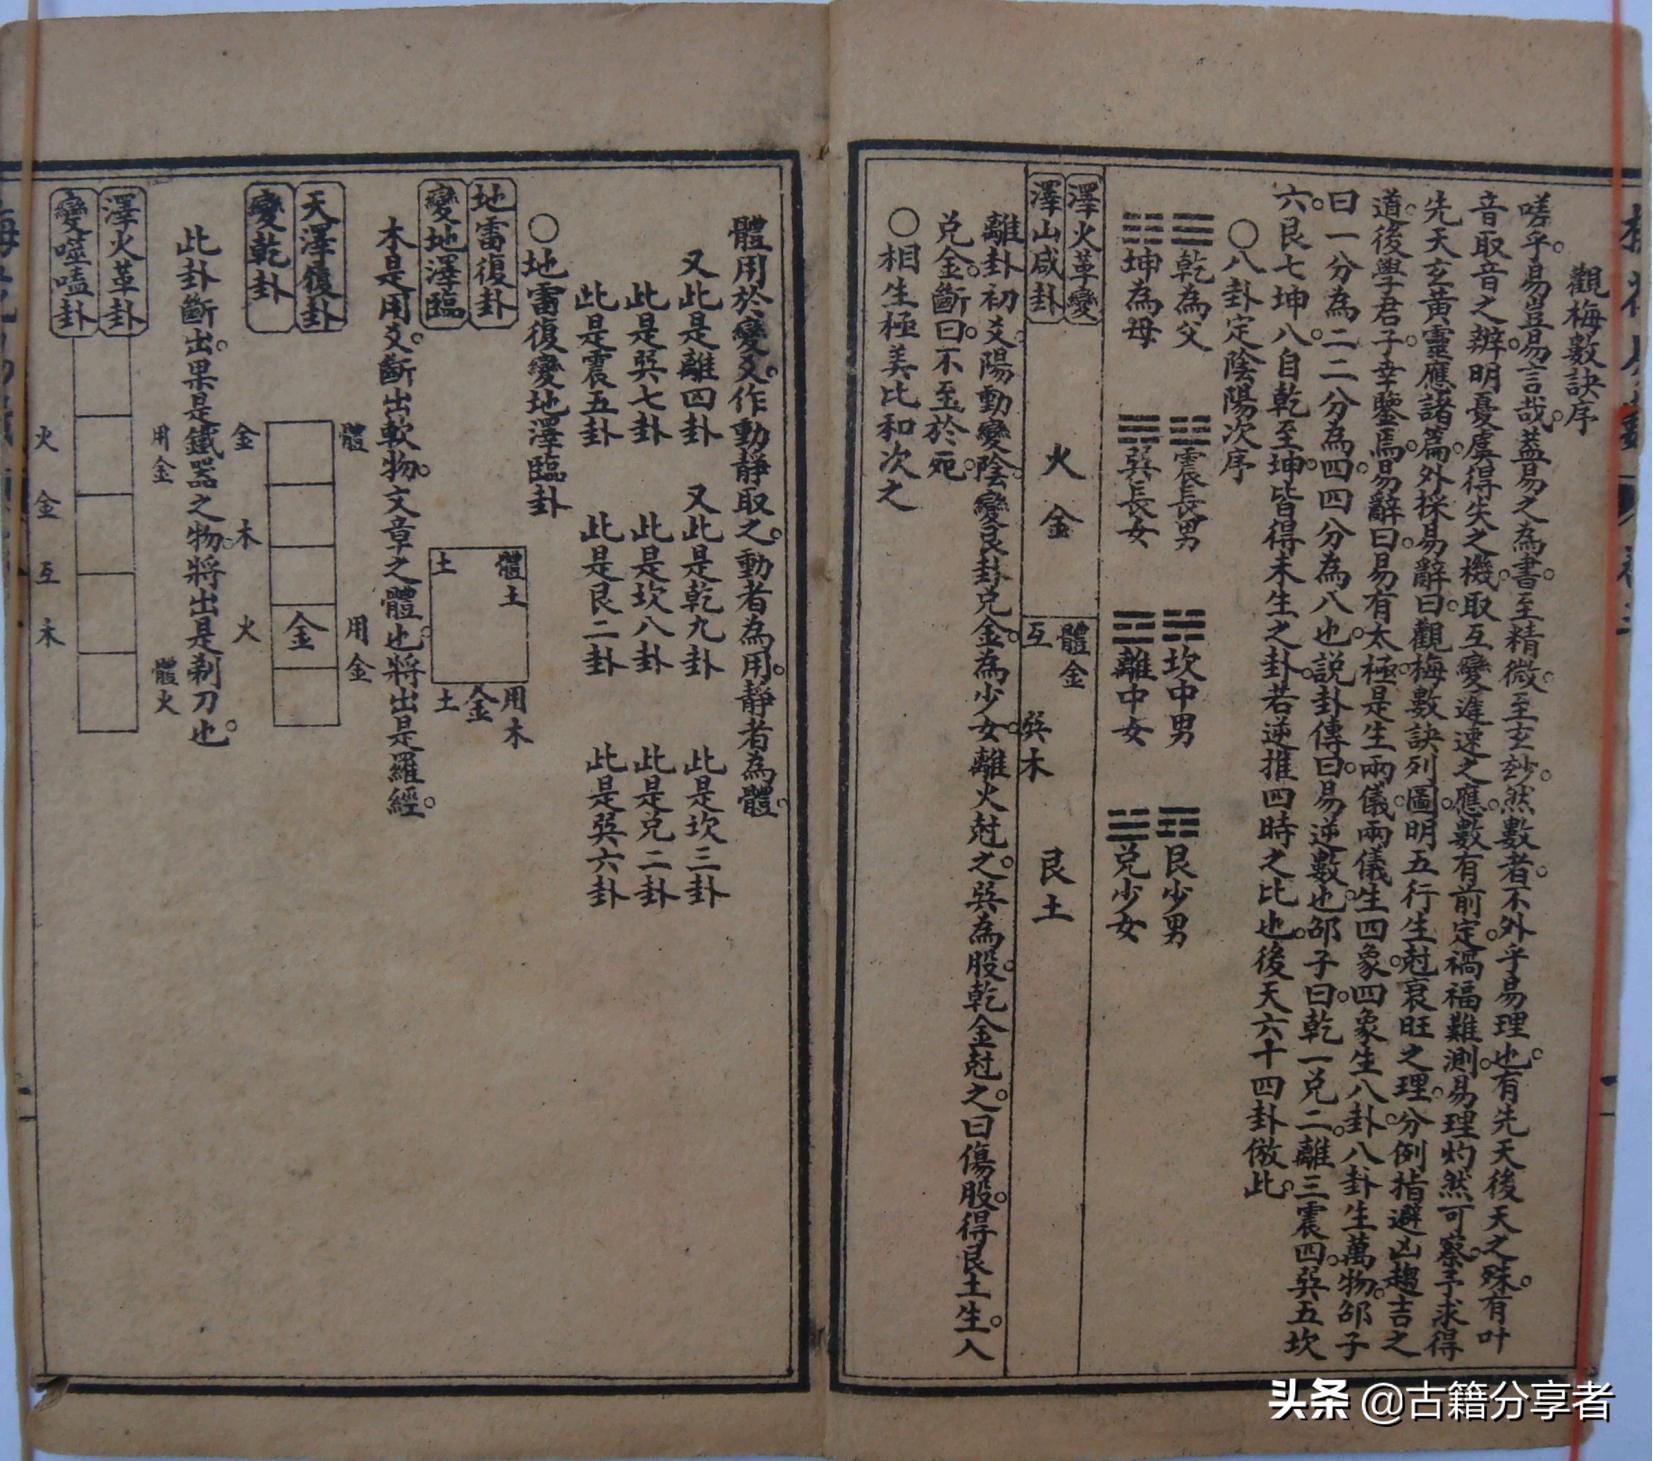 觀梅數訣序
嗟乎易豈易言哉蓋易之為書至精微至玄妙然數者不外乎易理也有先天後天之殊有叶
音取音之辨明憂虞得失之機取互變遲速之應數有前定禍福難測易理灼然可察予求得
先天玄黃靈應諸篇外採易辭曰觀梅數訣列圖明五行生尅衰旺之理分例指避凶趨吉之
道後學君子幸鑒焉易辭曰易有太極是生兩儀兩儀生四象四象生八卦八卦生萬物邵子
曰一分為二二分為四四分為八也説卦傳曰易逆數也邵子曰乾一兌二離三震四巽五坎
六艮七坤八自乾至坤皆得未生之卦若逆推四時之比也後天六十四卦倣此
○八卦定陰陽次序
☰乾為父 ☳震長男 ☵坎中男 ☶艮少男
☷坤為母 ☴巽長女 ☲離中女 ☱兌少女
澤火革變
澤山咸卦
火金
體金
互
巽木
艮土
離卦初爻陽動變陰變艮卦兌金為少女離火尅之巽為股乾金尅之曰傷股得艮土生入
兌金斷曰不至於死
○相生極美比和次之
體用於變爻作動靜取之動者為用靜者為體
又此是離四卦 又此是乾九卦 此是坎三卦
此是巽七卦 此是坎八卦 此是兌二卦
此是震五卦 此是艮二卦 此是巽六卦
○地雷復變地澤臨卦
地雷復卦
變地澤臨
體土
土
用木
金
土
木是用爻斷出軟物文章之體也將出是羅經
天澤復卦
變乾卦
體
用金
金
金
木
火
此卦斷出果是鐵器之物將出是剃刀也
澤火革卦
變噬嗑卦
用金
體火
火
金
互
木
头条 @古籍分享者